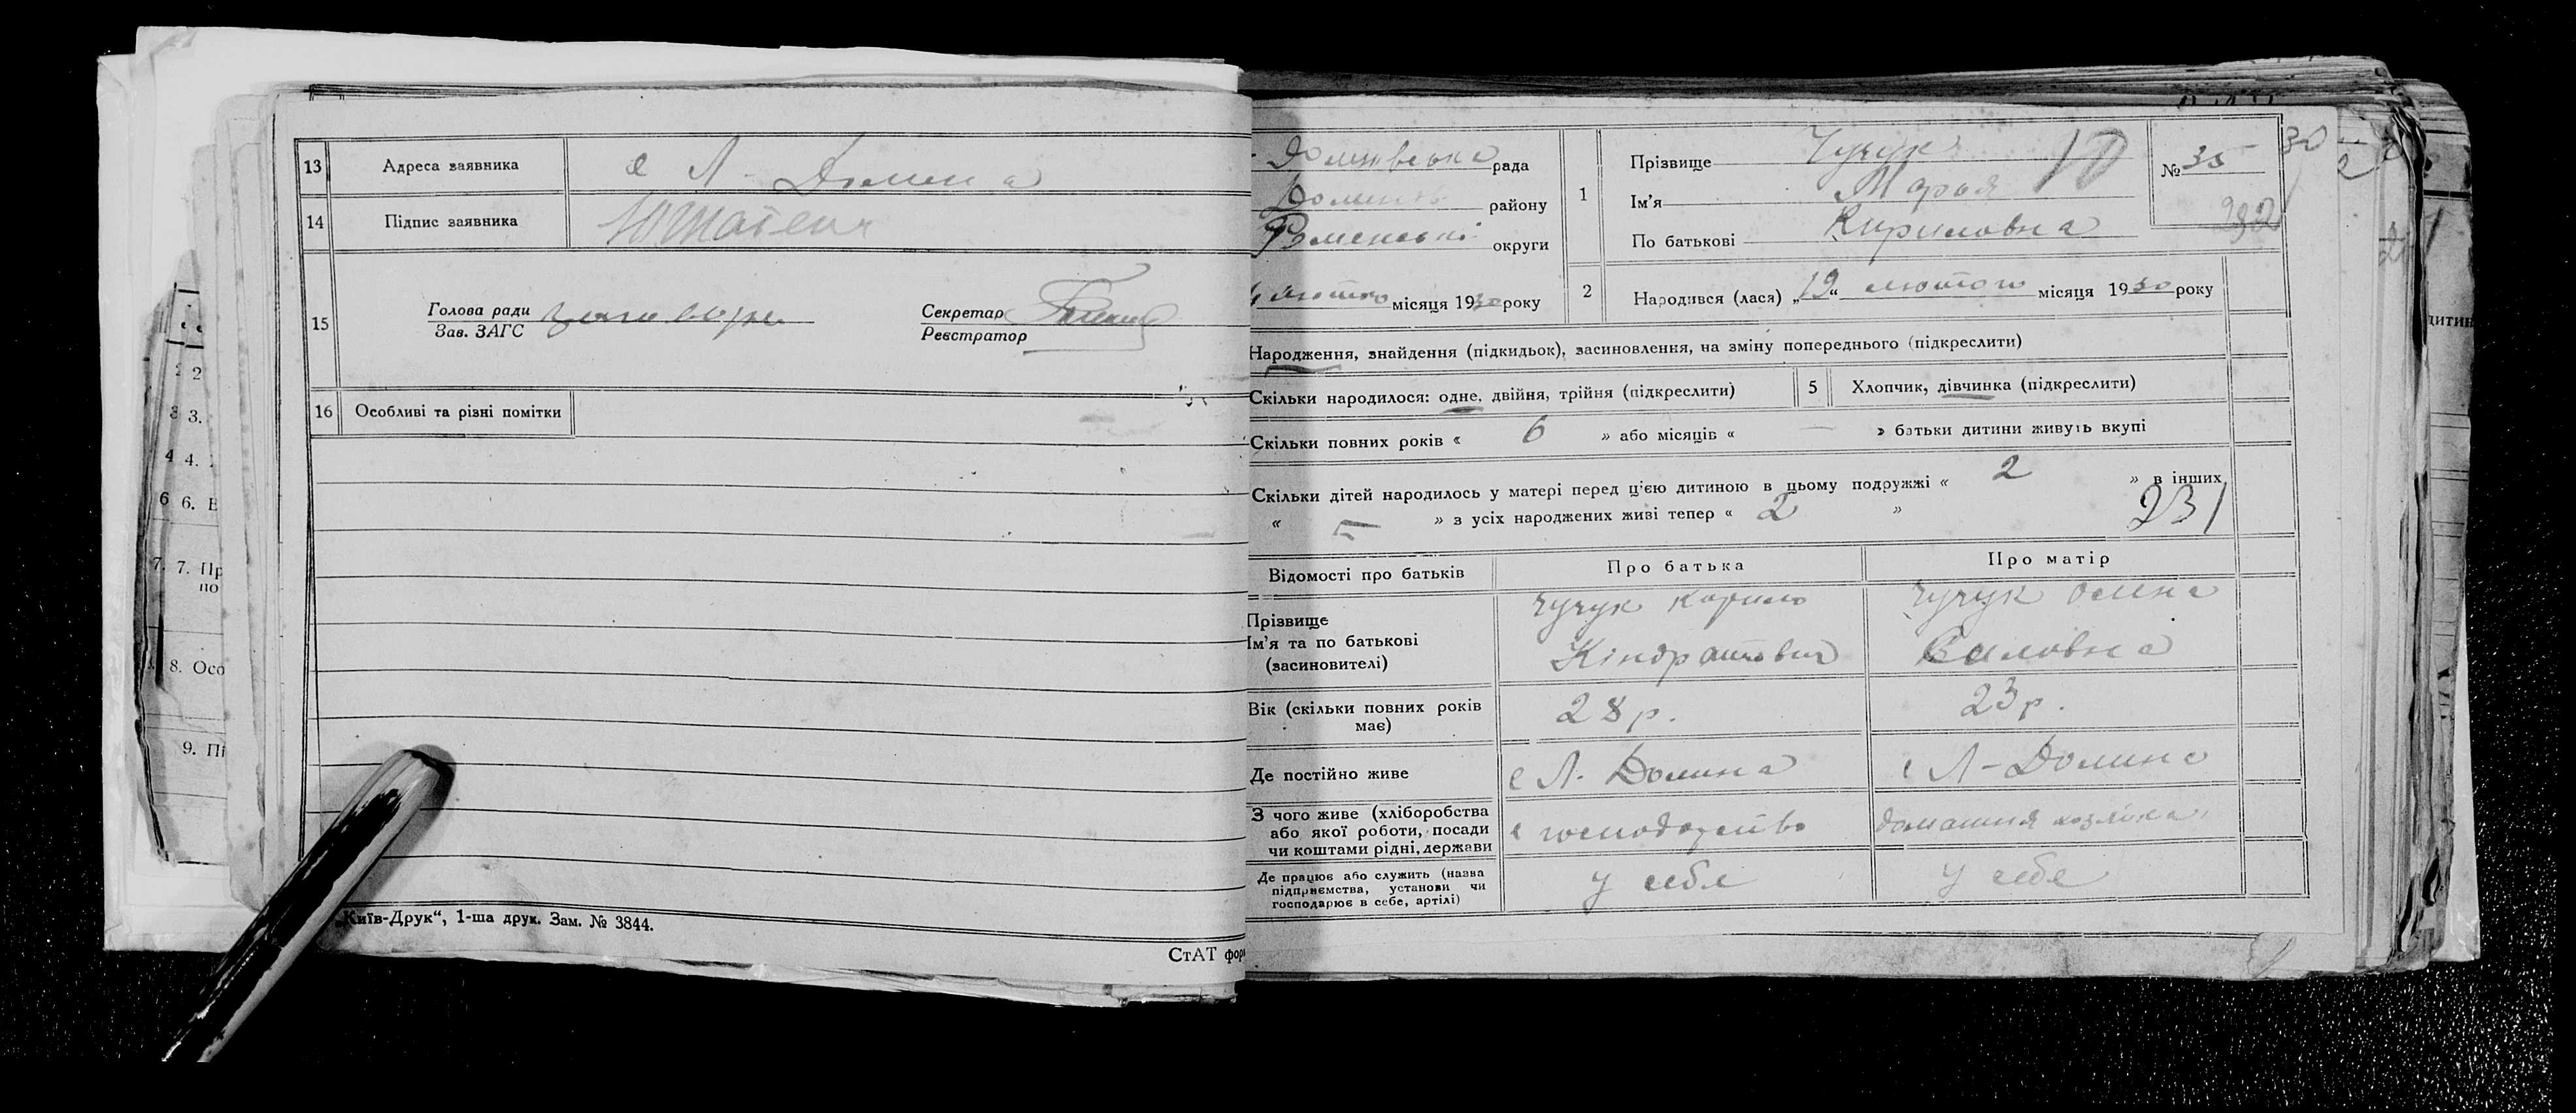 13 Адреса заявника с Л - Долина
14 Підпис заявника
15 Голова ради
Зав. ЗАГС
Секретар
Реєстратор
16 Особливі та різні помітки
„Київ-Друк“, 1-ша друк. Зам. № 3844.
СтАТ фор
2
3 3.
4 4.
6 6.
7. 7. Пр
по
8. Осо
9. Пі
рада
району
Роменські округи
місяця 1930 року
1 Прізвище Чучук
Ім'я Марья
По батькові Кириловна
№ 35
10
30
2 Народився (лася) „19“ лютого місяця 1930 року
Народження, знайдення (підкидьок), засиновлення, на зміну попереднього (підкреслити)
Скільки народилося: одне, двійня, трійня (підкреслити)
5 Хлопчик, дівчинка (підкреслити)
Скільки повних років « 6 » або місяців « — » батьки дитини живуть вкупі
Скільки дітей народилось у матері перед цією дитиною в цьому подружжі « 2 » в інших
« — » з усіх народжених живі тепер « 2 »
231
Відомості про батьків Про батька Про матір
Прізвище
Ім'я та по батькові
(засиновителі)
Чучук Корило
Кіндратович
Чучук Олена
Саловна
Вік (скільки повних років
має)
28 р. 23 р.
Де постійно живе с Л. Долина с Л - Долина
З чого живе (хліборобства
або якої роботи, посади
чи коштами рідні, держави
господарство домашня хозяйка
Де працює або служить (назва
підприємства, установи чи
господарює в себе, артілі)
у себе у себе
дитин